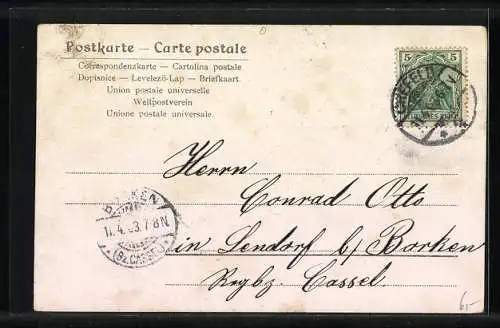 Postkarte — Carte postale
Correspondenzkarte — Cartolina postale
Dopisnice — Levelezö-Lap — Briefkaart
Union postale universelle
Weltpostverein
Unione postale universale.
5 5
Herrn
Conrad Otto
in Lendorf b/ Borken
Regbz. Cassel
BORKEN
11.4.03.7-8N
(Bz. CASSEL)
6,-